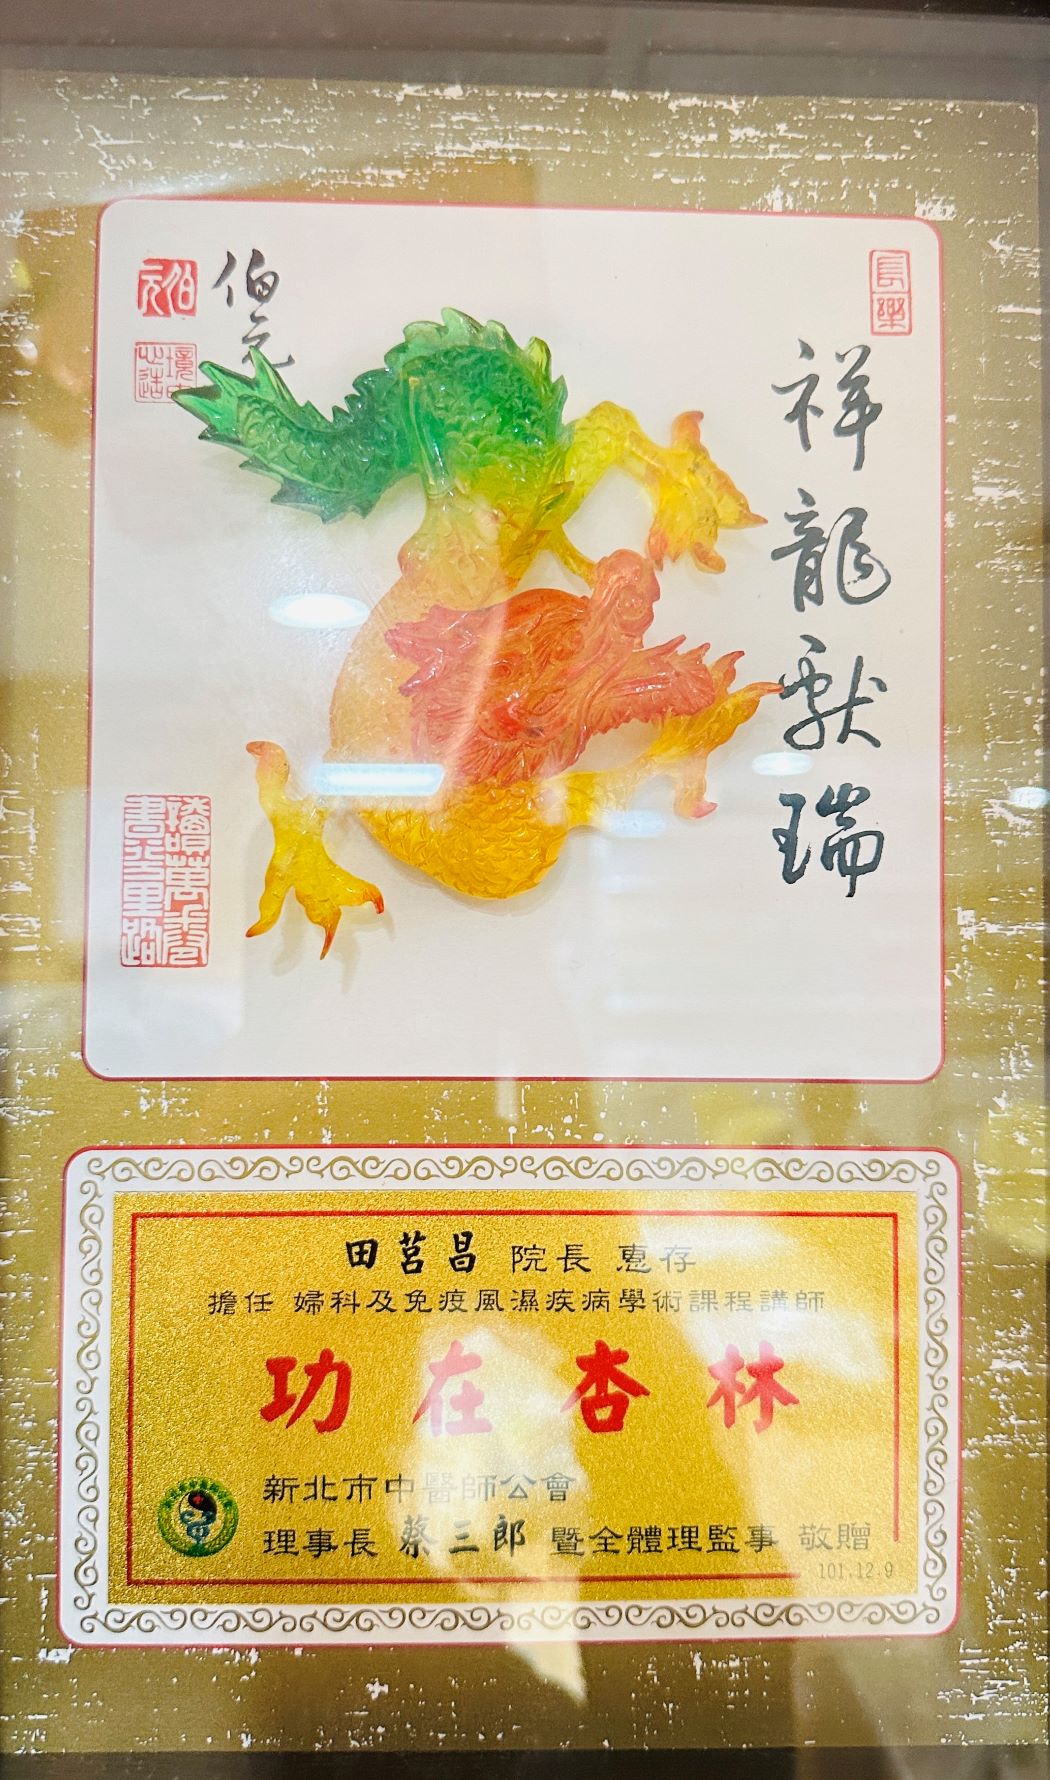 伯元
伯元
長樂
祥龍獻瑞
讀萬卷
書行里路
田莒昌 院長 惠存
擔任 婦科及免疫風濕疾病學術課程講師
功在杏林
新北市中醫師公會
理事長 蔡三郎 暨全體理監事 敬贈
101.12.9